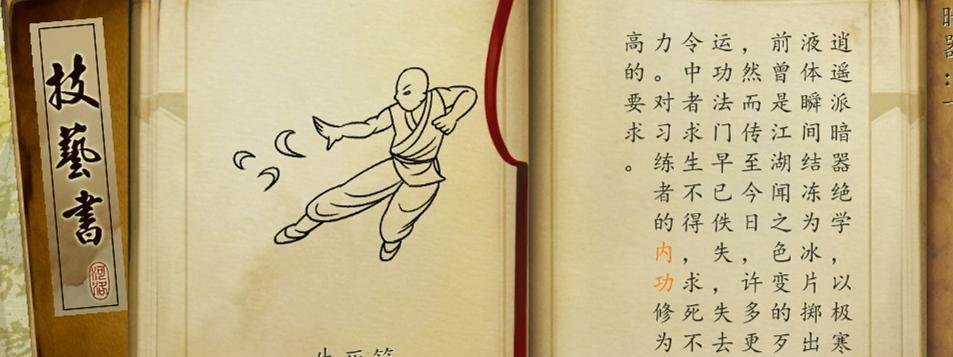 技藝書
河洛
逍遥派暗器绝学，以极寒
液体瞬间结冻为冰片掷出
前曾是江湖闻之色变的
，然而传至今日，许多更
运功法门早已佚失，失去
令中者求生不得，求死不
力。对习练者的内功修为
高的要求。